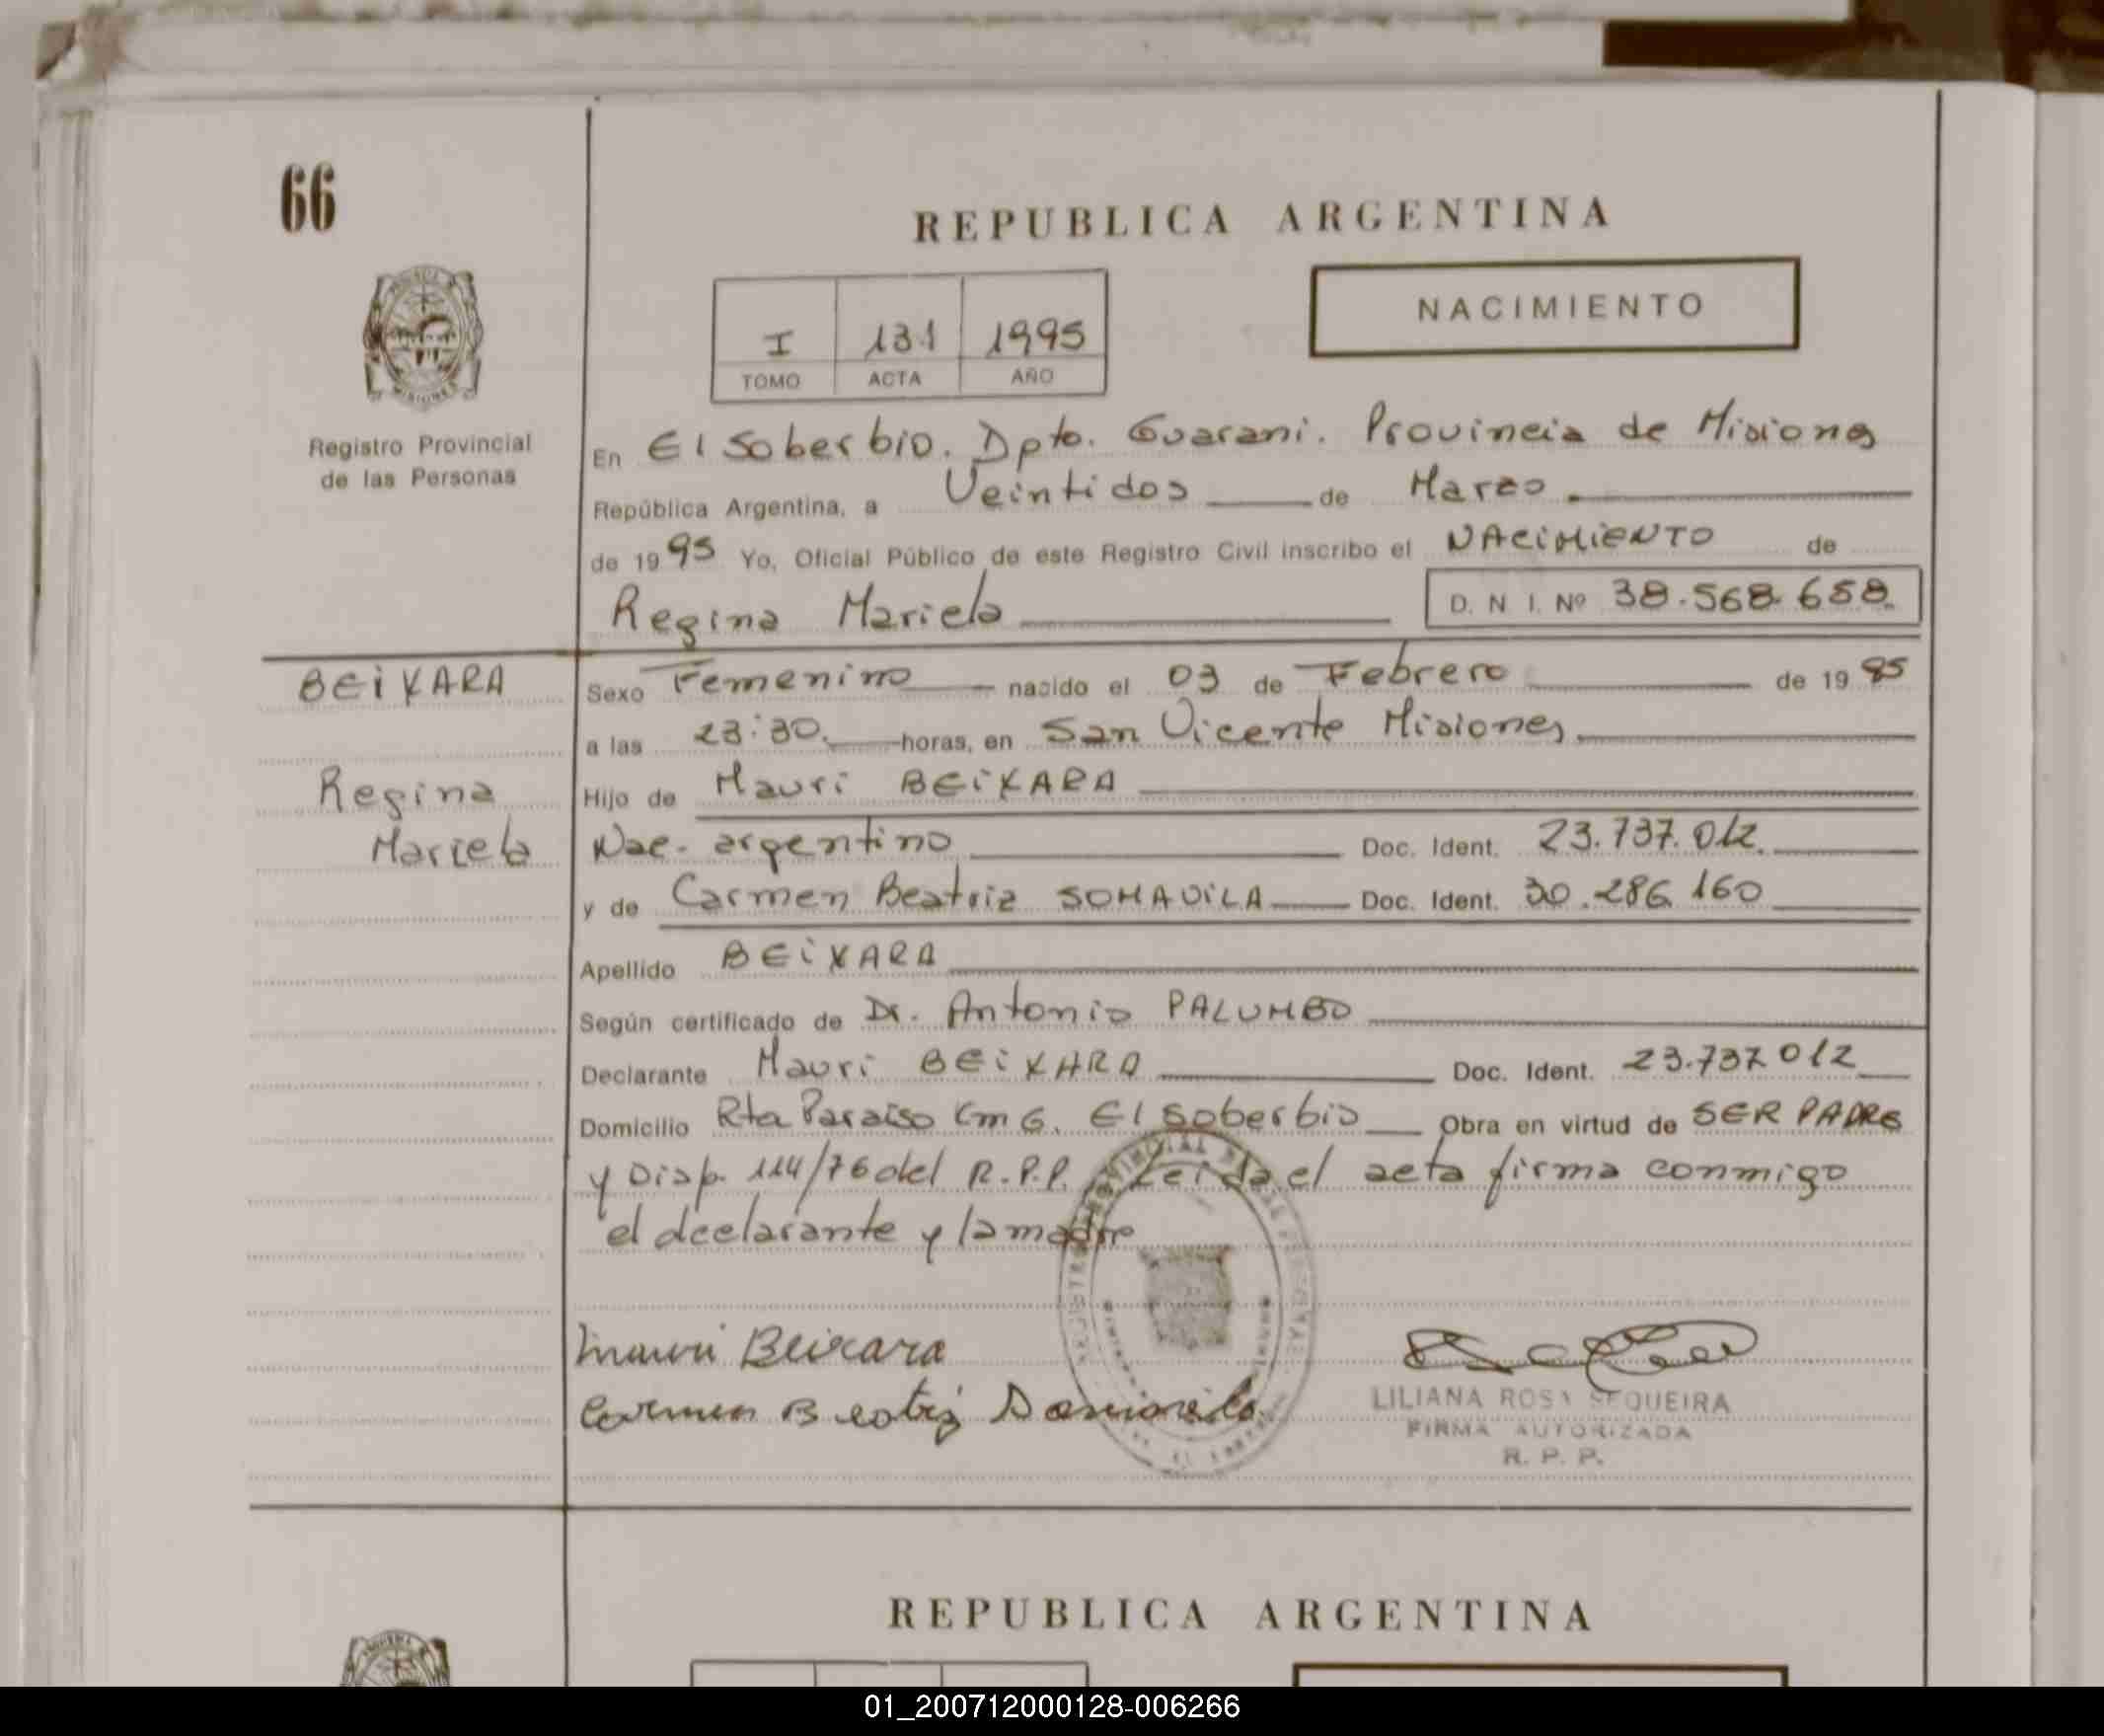 66
REPUBLICA ARGENTINA
NACIMIENTO
I 131 1995
TOMO ACTA AÑO
Registro Provincial
de las Personas
En El Soberbio. Dpto. Guarani. Provincia de Misiones
República Argentina, a Veintidos de Marzo.
de 1995 Yo, Oficial Público de este Registro Civil inscribo el NACIMIENTO de
Regina Mariela D. N. I. Nº 38.568.658.
BEIXARA
Regina
Mariela
Sexo Femenino nacido el 03 de Febrero de 1995
a las 23:30. horas, en San Vicente Misiones
Hijo de Mauri BEIXARA
Nac. argentino Doc. Ident. 23.737.012.
y de Carmen Beatriz SOMAVILA Doc. Ident. 30.286.160
Apellido BEIXARA
Según certificado de Dr. Antonio PALUMBO
Declarante Mauri BEIXARA Doc. Ident. 23.737.012
Domicilio Rta Paraiso Km 6. El Soberbio Obra en virtud de SER PADRE
y Disp. 114/76 del R.P.P. Leida el acta firma conmigo
el declarante y la madre
Mauri Beixara
Carmen Beatriz Somavila
LILIANA ROSA SEQUEIRA
FIRMA AUTORIZADA
R. P. P.
REPUBLICA ARGENTINA
01_200712000128-006266